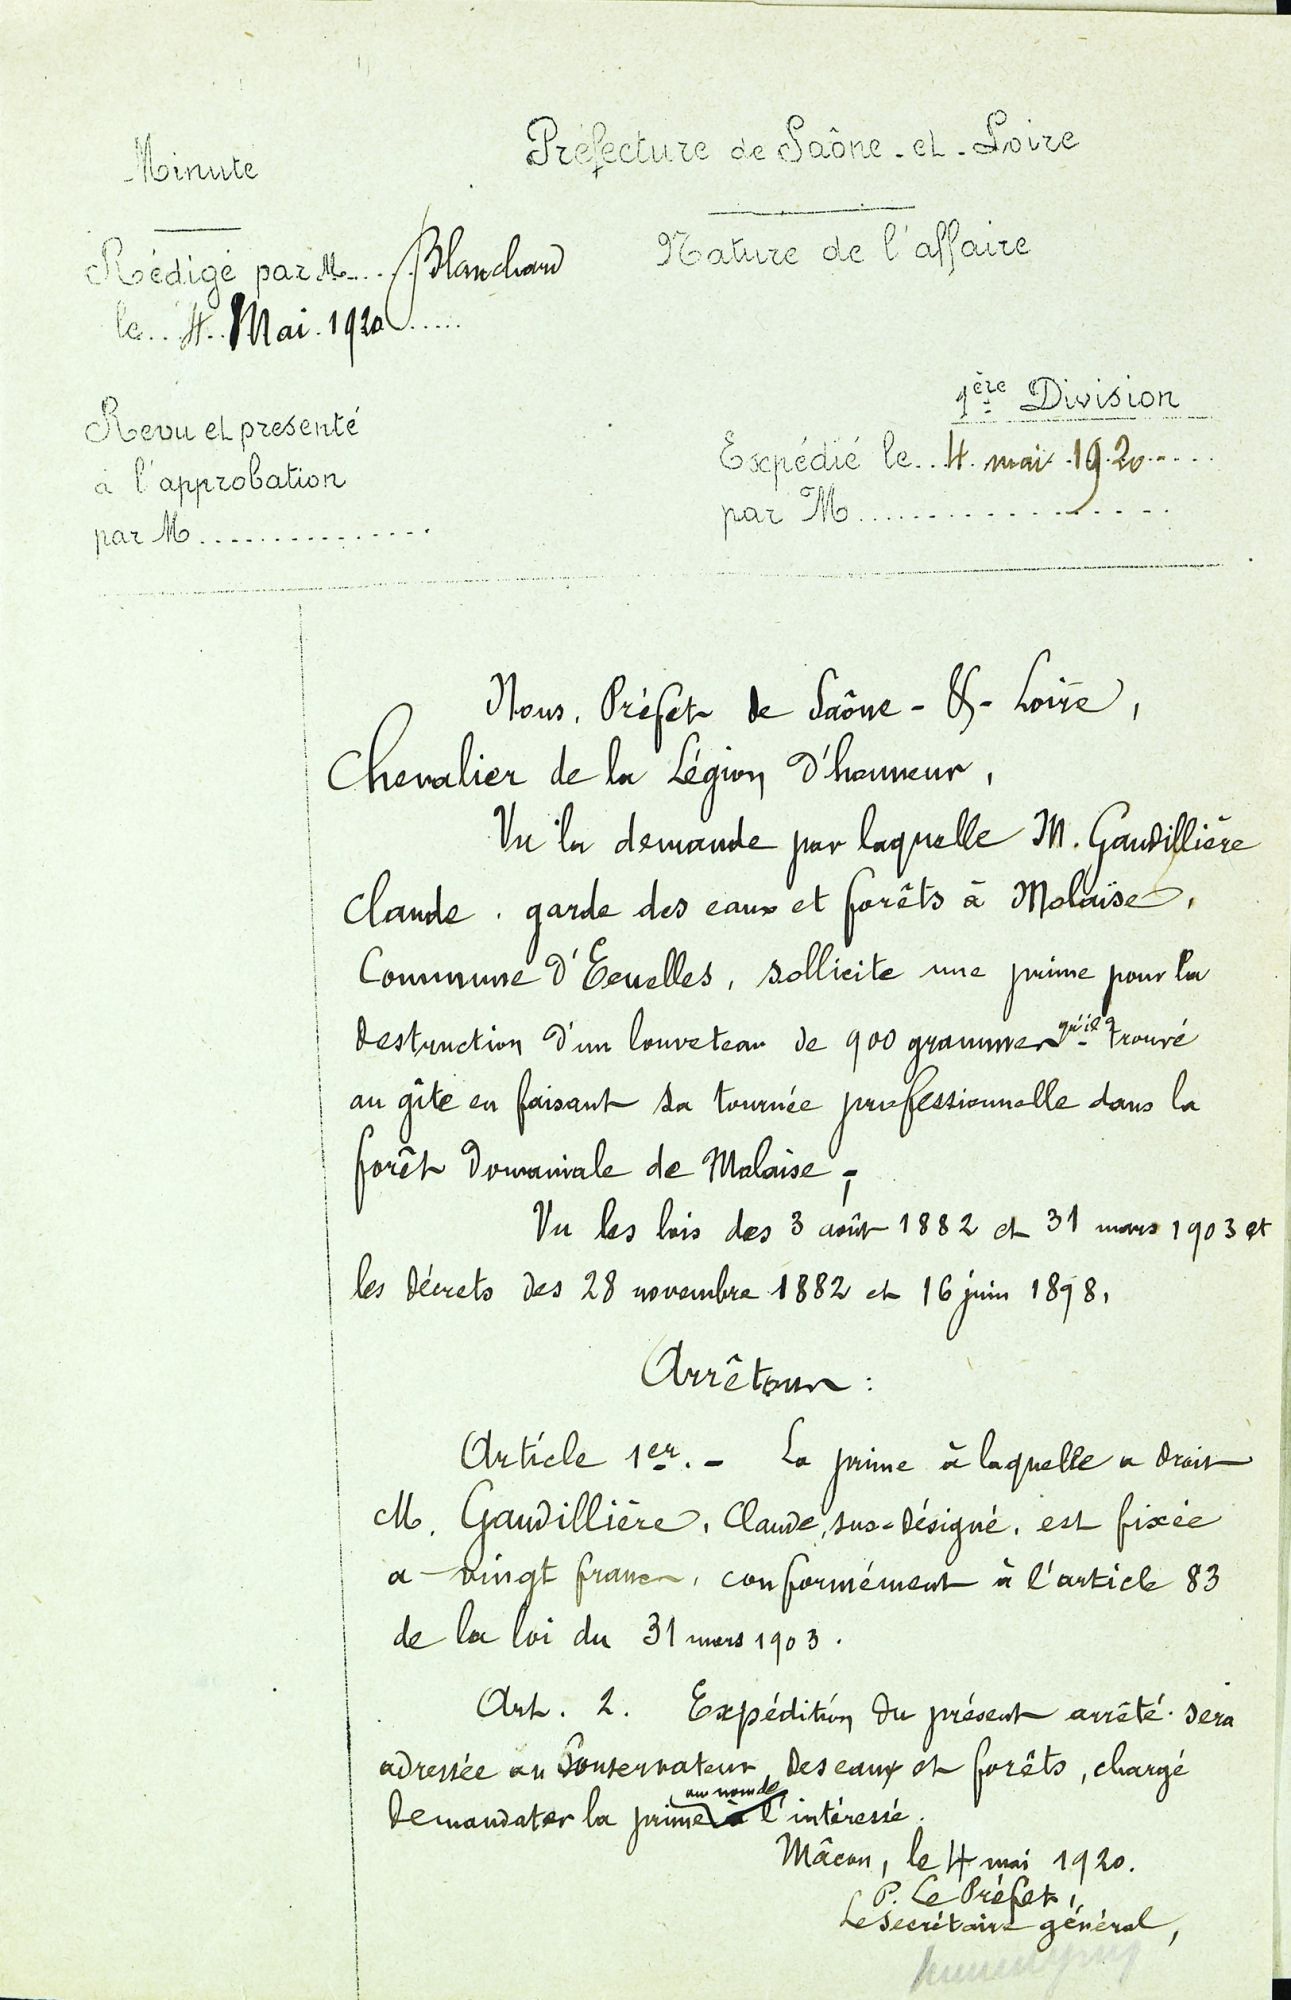 Minute
Préfecture de Saône-et-Loire
Rédigé par M. Blanchard
le 4 Mai 1920
Nature de l'affaire
Revu et presenté
à l'approbation
par M
1ère Division
Expédié le 4 mai 1920
par M
Nous, Préfet de Saône-&-Loire,
Chevalier de la Légion d'honneur,
Vu la demande par laquelle M. Gaudillière
Claude, garde des eaux et forêts à Molaïse,
Commune d'Ecuelles, sollicite une prime pour la
destruction d'un louveteau de 900 grammes qu'il a trouvé
au gîte en faisant sa tournée professionnelle dans la
forêt domaniale de Molaise;
Vu les lois des 3 août 1882 et 31 mars 1903 et
les décrets des 28 novembre 1882 et 16 juin 1898,
Arrêtons :
Article 1er. - La prime à laquelle a droit
M. Gaudillière, Claude, sus-désigné, est fixée
a vingt francs, conformément à l'article 83
de la loi du 31 mars 1903.
Art. 2. Expédition du présent arrêté sera
adressée au Conservateur des eaux et forêts, chargé
de mandater la prime au nom de l'intéressé.
Mâcon, le 4 mai 1920.
P. Le Préfet,
Le secrétaire général,